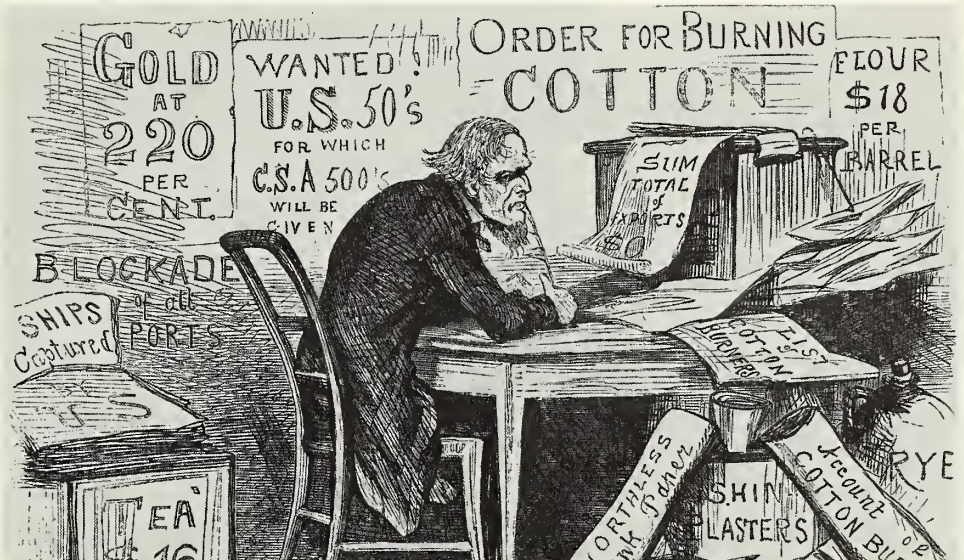 GOLD
AT
220
PER
CENT.
WANTED!
U.S. 50's
FOR WHICH
C.S.A 500's
WILL BE
GIVEN
ORDER FOR BURNING
COTTON
FLOUR
$18
PER
BARREL
SUM
TOTAL
of
EXPORTS
$0
BLOCKADE
of all
PORTS
SHIPS
Captured
U S
TEA
$16
LIST
of
COTTON
BURNERS
WORTHLESS
Paper
SHIN
PLASTERS
Account
of
COTTON
RYE